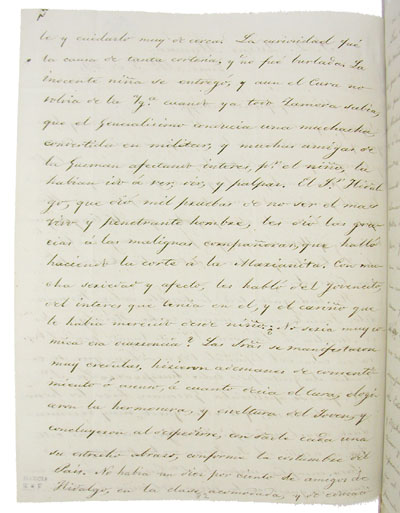 le y cuidarlo muy de cerca. La curiosidad fué
la causa de tanta cortesia, y no fué burlada. La
inocente niña se entregó, y aun el Cura no
volvia de la Yga. cuando ya todo Zamora sabia,
que el Generalisimo conducia una muchacha
convertida en militar, y muchas amigas de
la Guzman afectando interes, pr. el niño, la
habian ido á ver, oir, y palpar. El Sr. Hidal-
go, que dió mil pruebas de no ser el mas
vivo y penetrante hombre, les dió las gra-
cias á las malignas compañeras, que halló
haciendo la corte á la Marianita. Con mu-
cha seriedad y afecto, les habló del jovencito,
del interes que tenia en el, y el cariño que
le habia merecido desde niño. ¿No seria muy co-
mica esa ocurrencia? Las Sras. se manifestaron
muy creidas, hicieron ademanes de consenti-
miento á cuanto decia el Cura, elogi-
aron la hermosura, y esveltura del Joven, y
concluyeron al despedirse, con darle cada una
su estrecho abrazo, conforme la costumbre del
Pais. No habia un diez por ciento de amigos de
Hidalgo, en la clase acomodada, y de